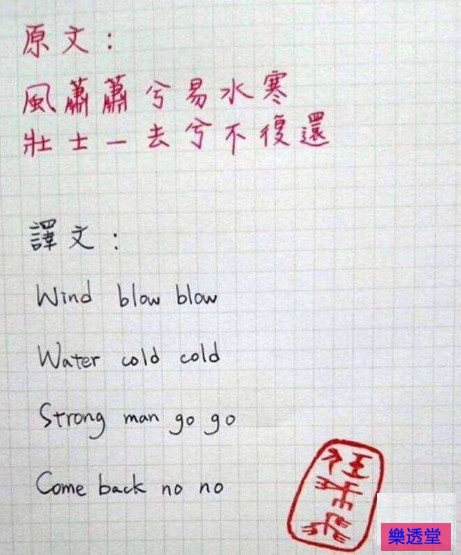 原文：
風蕭蕭兮易水寒
壯士一去兮不復還
譯文：
Wind blow blow
Water cold cold
Strong man go go
Come back no no
樂透堂